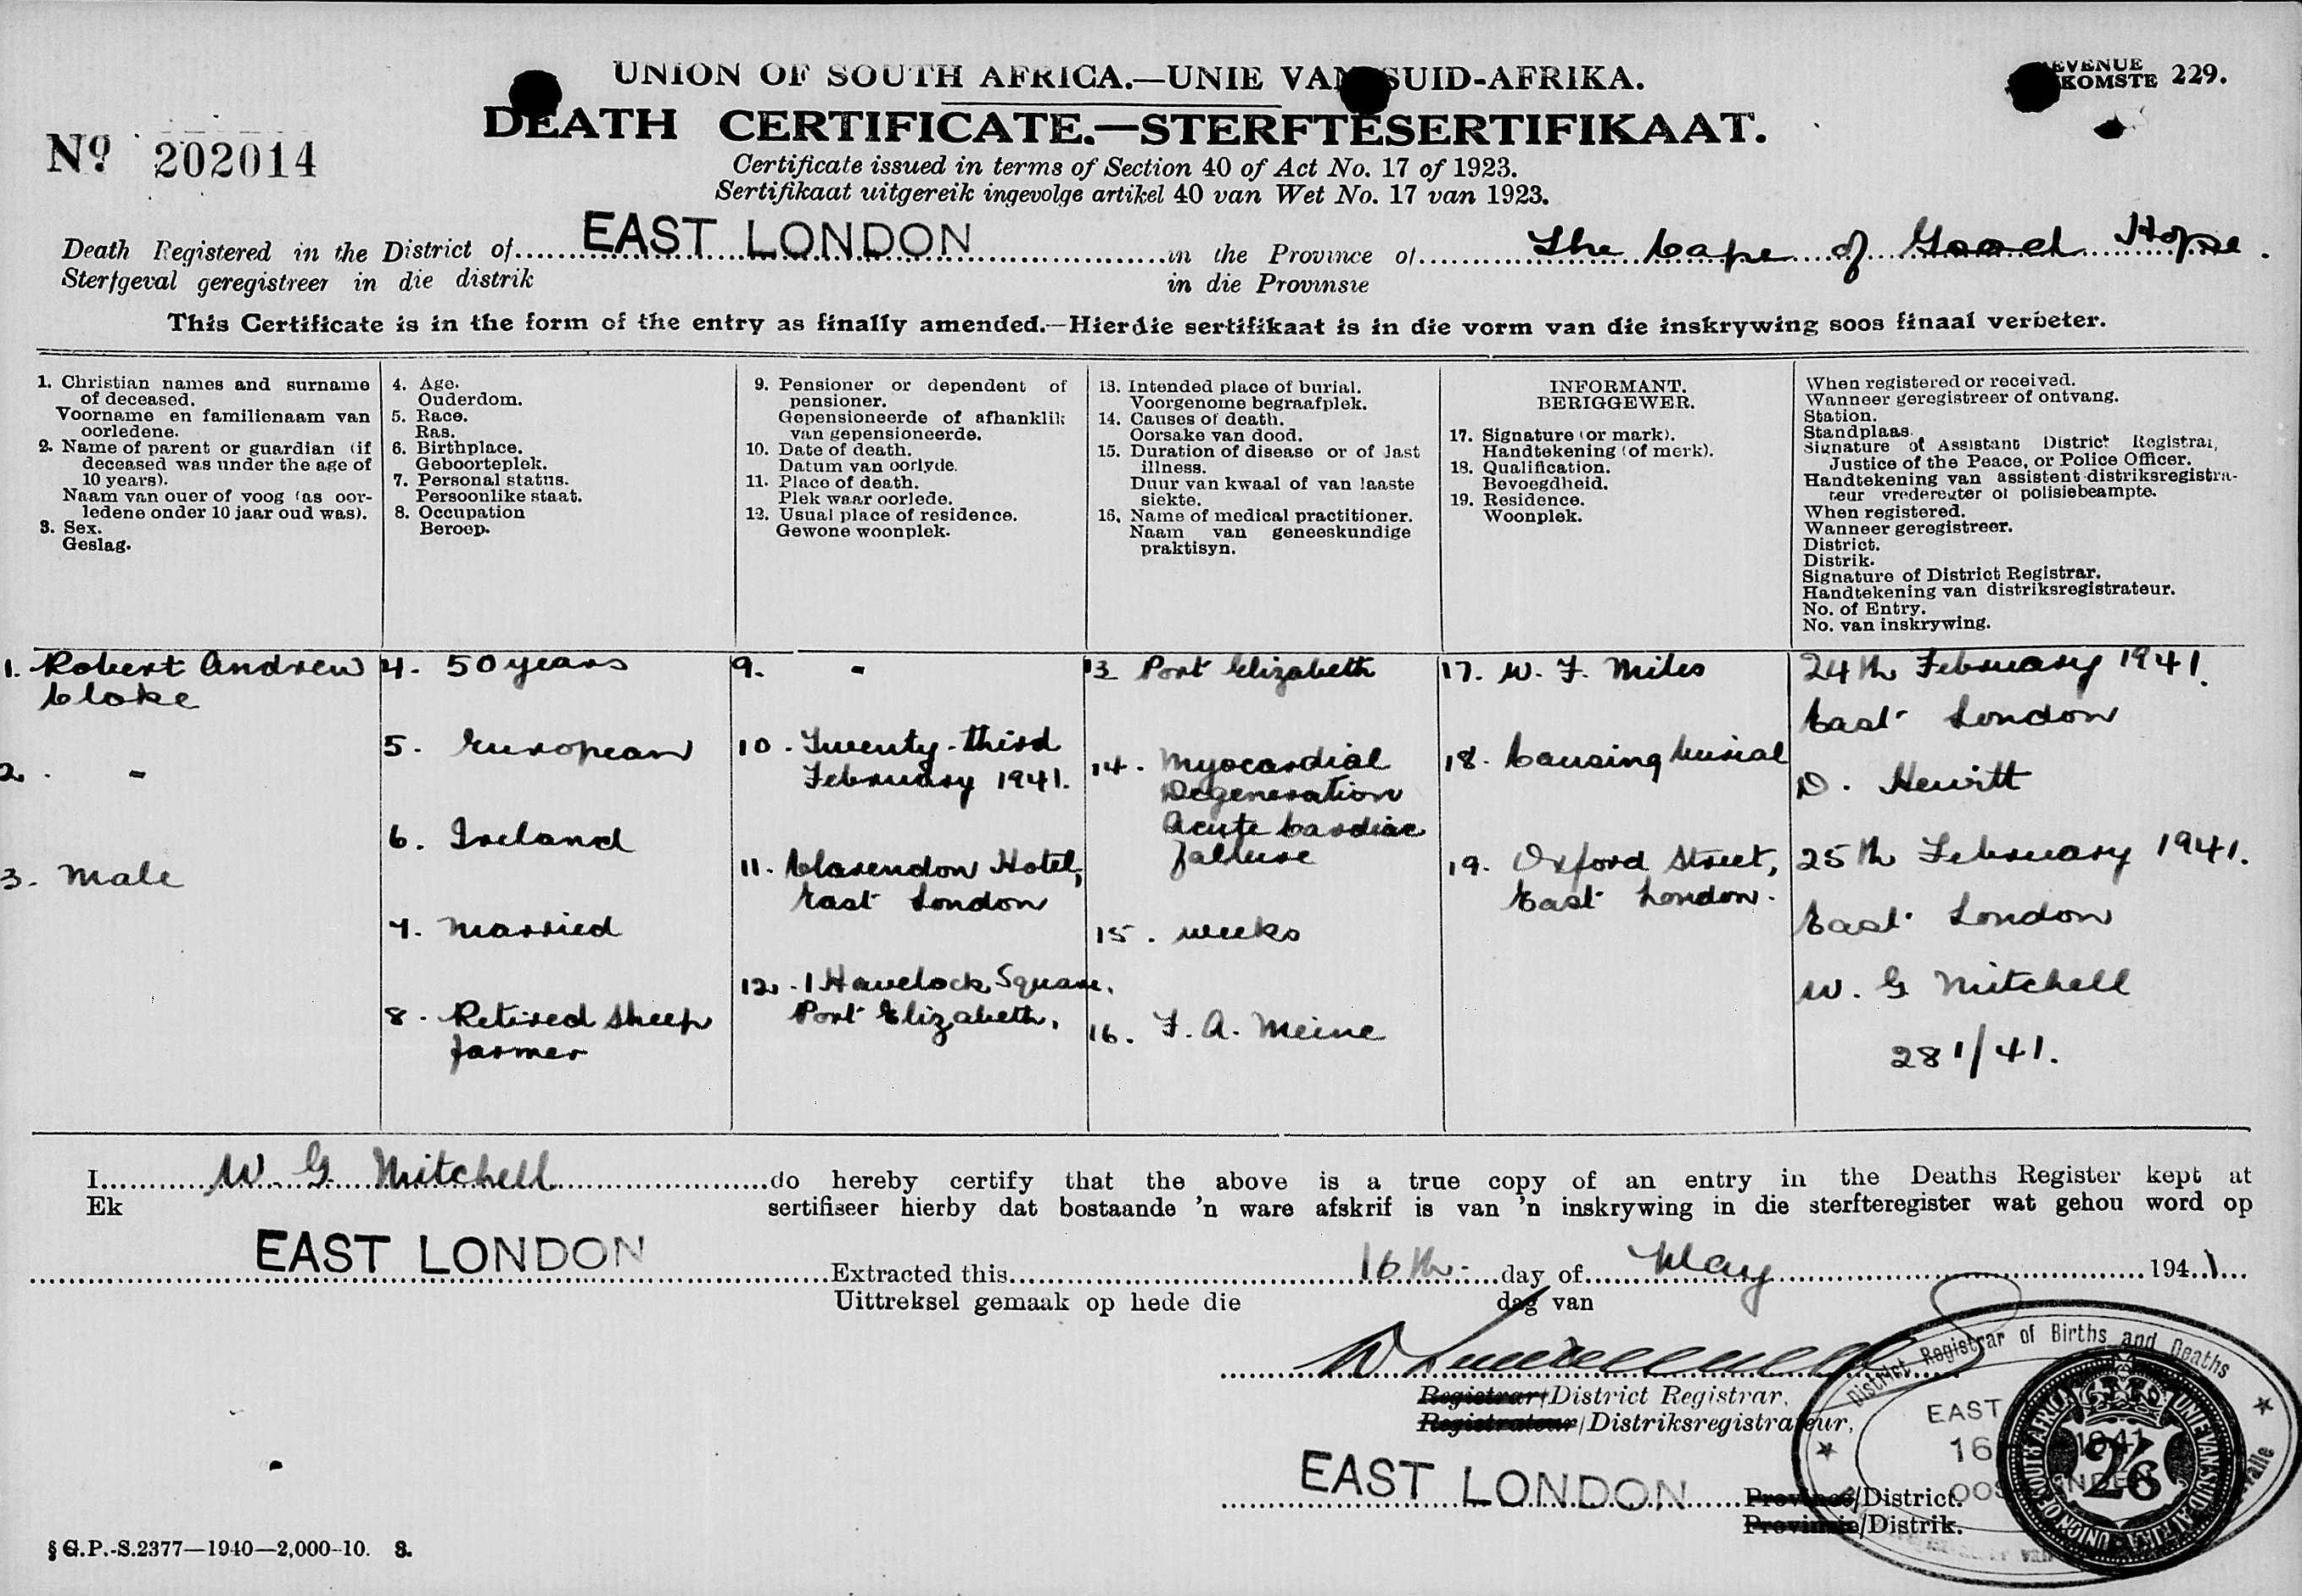 UNION OF SOUTH AFRICA.—UNIE VAN SUID-AFRIKA.
REVENUE
INKOMSTE 229.
DEATH CERTIFICATE.—STERFTESERTIFIKAAT.
Nº 202014
Certificate issued in terms of Section 40 of Act No. 17 of 1923.
Sertifikaat uitgereik ingevolge artikel 40 van Wet No. 17 van 1923.
Death Registered in the District of EAST LONDON in the Province of The Cape of Good Hope.
Sterfgeval geregistreer in die distrik in die Provinsie
This Certificate is in the form of the entry as finally amended.—Hierdie sertifikaat is in die vorm van die inskrywing soos finaal verbeter.
1. Christian names and surname
of deceased.
Voorname en familienaam van
oorledene.
2. Name of parent or guardian (if
deceased was under the age of
10 years).
Naam van ouer of voog (as oor-
ledene onder 10 jaar oud was).
3. Sex.
Geslag.
4. Age.
Ouderdom.
5. Race.
Ras.
6. Birthplace.
Geboorteplek.
7. Personal status.
Persoonlike staat.
8. Occupation
Beroep.
9. Pensioner or dependent of
pensioner.
Gepensioneerde of afhanklik
van gepensioneerde.
10. Date of death.
Datum van oorlyde.
11. Place of death.
Plek waar oorlede.
12. Usual place of residence.
Gewone woonplek.
13. Intended place of burial.
Voorgenome begraafplek.
14. Causes of death.
Oorsake van dood.
15. Duration of disease or of last
illness.
Duur van kwaal of van laaste
siekte.
16. Name of medical practitioner.
Naam van geneeskundige
praktisyn.
INFORMANT.
BERIGGEWER.
17. Signature (or mark).
Handtekening (of merk).
18. Qualification.
Bevoegdheid.
19. Residence.
Woonplek.
When registered or received.
Wanneer geregistreer of ontvang.
Station.
Standplaas.
Signature of Assistant District Registrar,
Justice of the Peace, or Police Officer.
Handtekening van assistent-distriksregistra-
teur vrederegter of polisiebeampte.
When registered.
Wanneer geregistreer.
District.
Distrik.
Signature of District Registrar.
Handtekening van distriksregistrateur.
No. of Entry.
No. van inskrywing.
1. Robert Andrew
Cloke
2. -
3. Male
4. 50 years
5. European
6. Ireland
7. Married
8. Retired Sheep
farmer
9. -
10. Twenty-third
February 1941.
11. Clarendon Hotel,
East London
12. 1 Havelock Square,
Port Elizabeth.
13 Port Elizabeth
14. Myocardial
Degeneration
Acute Cardiac
failure
15. weeks
16. F. A. Meine
17. W. F. Miles
18. Causing burial
19. Oxford Street,
East London.
24th February 1941.
East London
D. Hewitt
25th February 1941.
East London
W. G Mitchell
281/41.
I W. G. Mitchell do hereby certify that the above is a true copy of an entry in the Deaths Register kept at
Ek sertifiseer hierby dat bostaande 'n ware afskrif is van 'n inskrywing in die sterfteregister wat gehou word op
EAST LONDON Extracted this 16th day of May 1941
Uittreksel gemaak op hede die dag van
Registrar/District Registrar.
Registrateur/Distriksregistrateur,
EAST LONDON Province/District.
Provinsie/Distrik.
District Registrar of Births and Deaths
EAST
16 1941
UNION OF SOUTH AFRICA
UNIE VAN SUID-AFRIKA
2/6
§ G.P.-S.2377—1940—2,000-10. S.